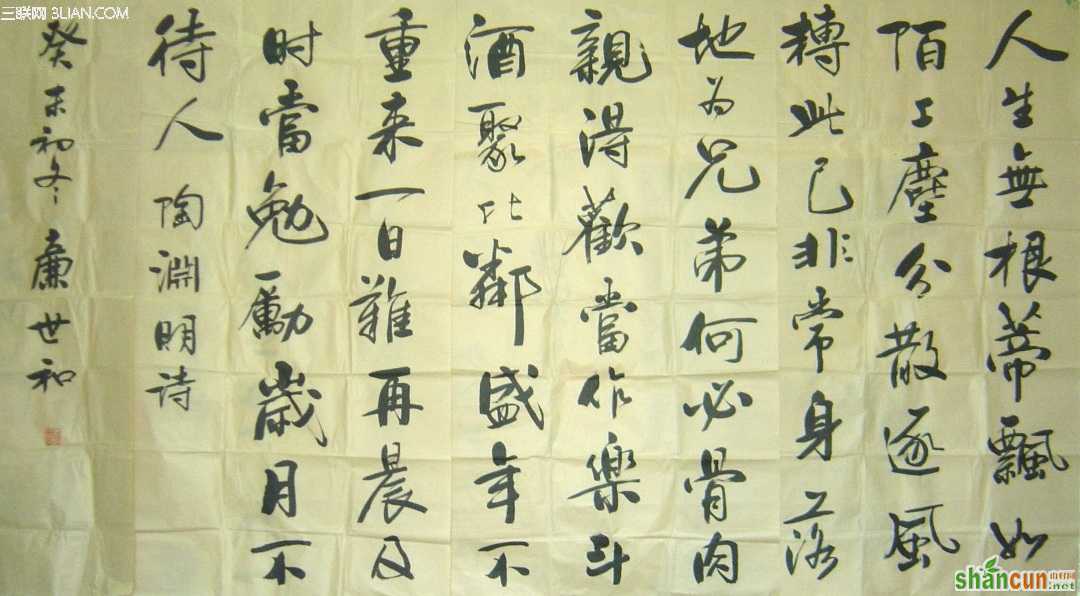 三联网 3LIAN.COM
人生無根蒂飄如
陌上塵分散逐風
轉此已非常身落
地为兄弟何必骨肉
親得歡當作樂斗
酒聚比鄰盛年不
重来一日難再晨及
时當勉勵歲月不
待人 陶淵明诗
癸未初冬 廉世和
shancun 山村网 .net